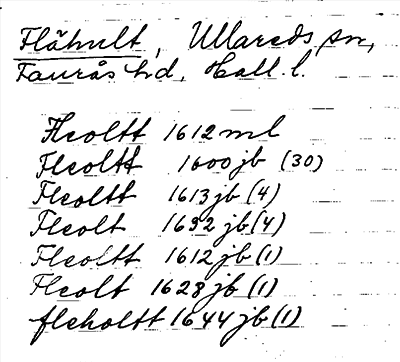 Flähult, Ullareds sn,
Faurås hd, Hall. l.
Fleoltt 1612 ml
Fleoltt 1600 jb (30)
Fleoltt 1613 jb (4)
Fleolt 1692 jb (4)
Fleoltt 1612 jb (1)
Fleolt 1628 jb (1)
fleholtt 1644 jb (1)